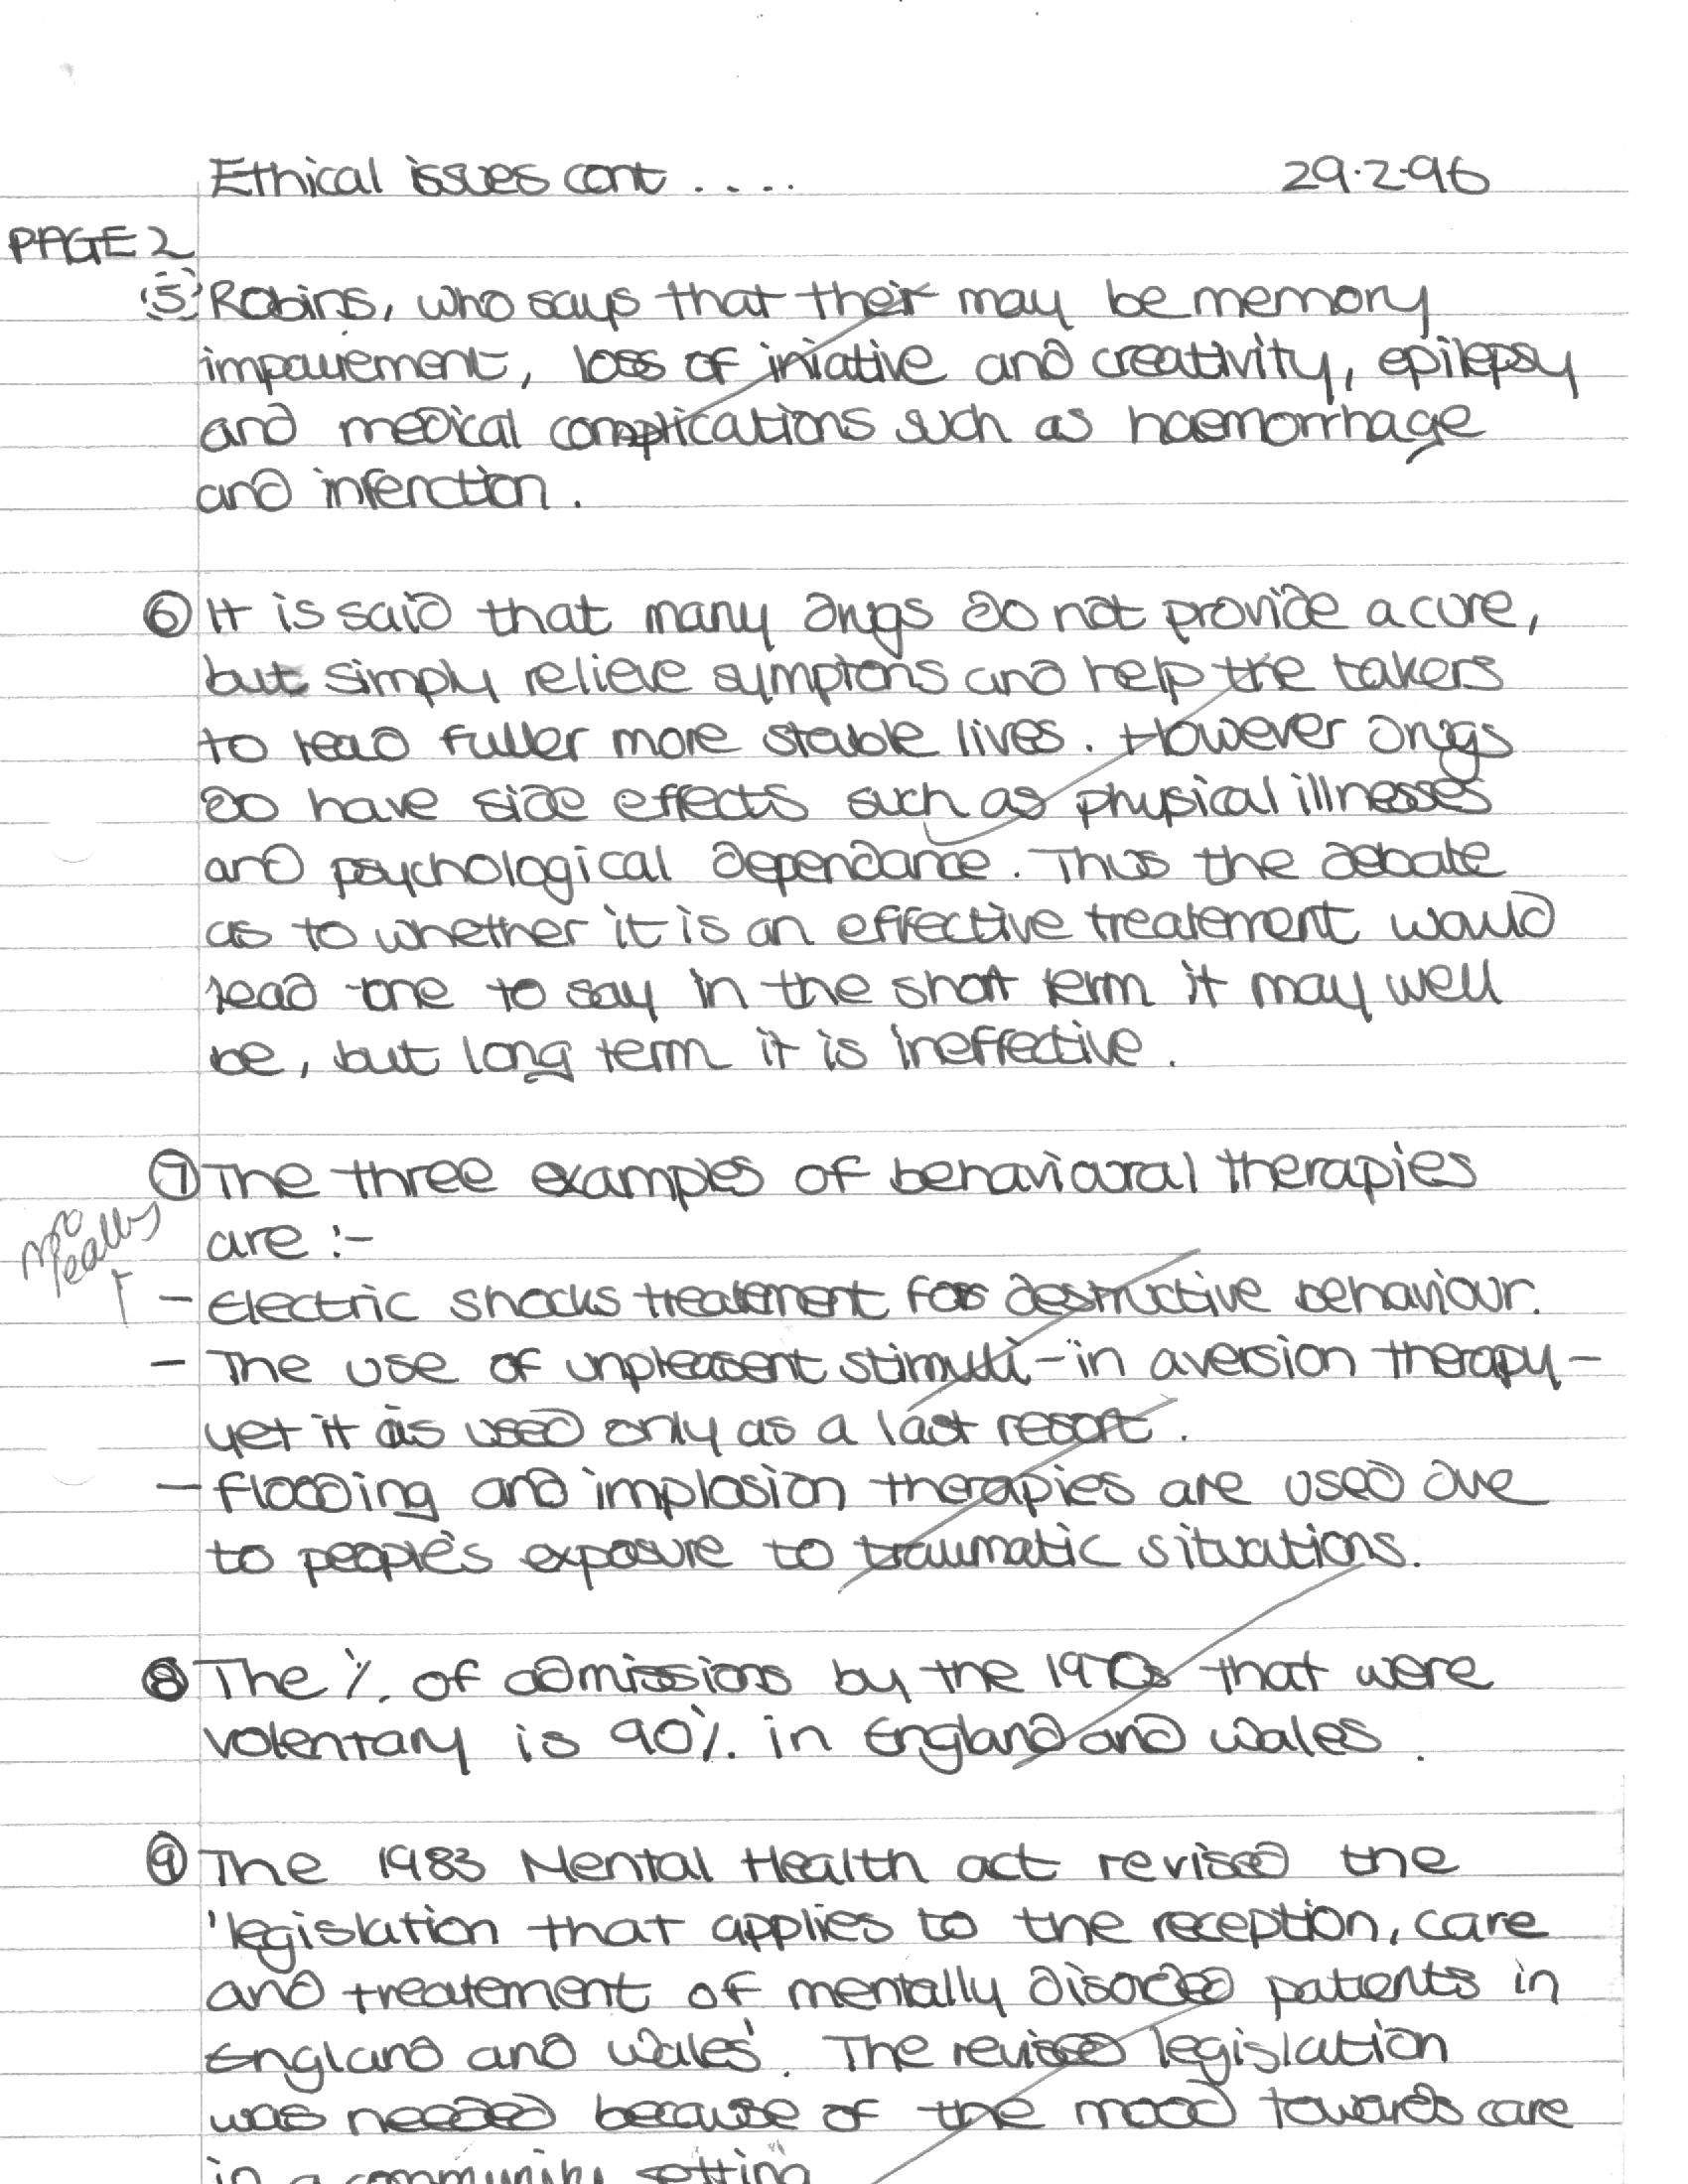 Ethical issues cont ..... 29.2.96
PAGE 2
(5) Robins, who says that their may be memory
impairement, loss of iniative and creativity, epilepsy
and medical complications such as haemorrhage
and infenction.
⑥ It is said that many drugs do not provide a cure,
but simply relieve symptons and help the takers
to lead fuller more stable lives. However drugs
do have side effects such as physical illnesses
and psychological dependance. Thus the debate
as to whether it is an effective treatement would
lead one to say in the short term it may well
be, but long term it is ineffective.
⑦ The three examples of behavioural therapies
are :-
really
- Electric shocks treatement for destructive behaviour.
- The use of unpleasent stimuli - in aversion therapy -
yet it is used only as a last resort.
- flooding and implosion therapies are used due
to people's exposure to traumatic situations.
⑧ The % of admissions by the 1970s that were
volentary is 90% in England and Wales.
⑨ The 1983 Mental Health act revised the
'legislation that applies to the reception, care
and treatement of mentally disorded patients in
England and Wales'. The revised legislation
was needed because of the mood towards care
in a community setting